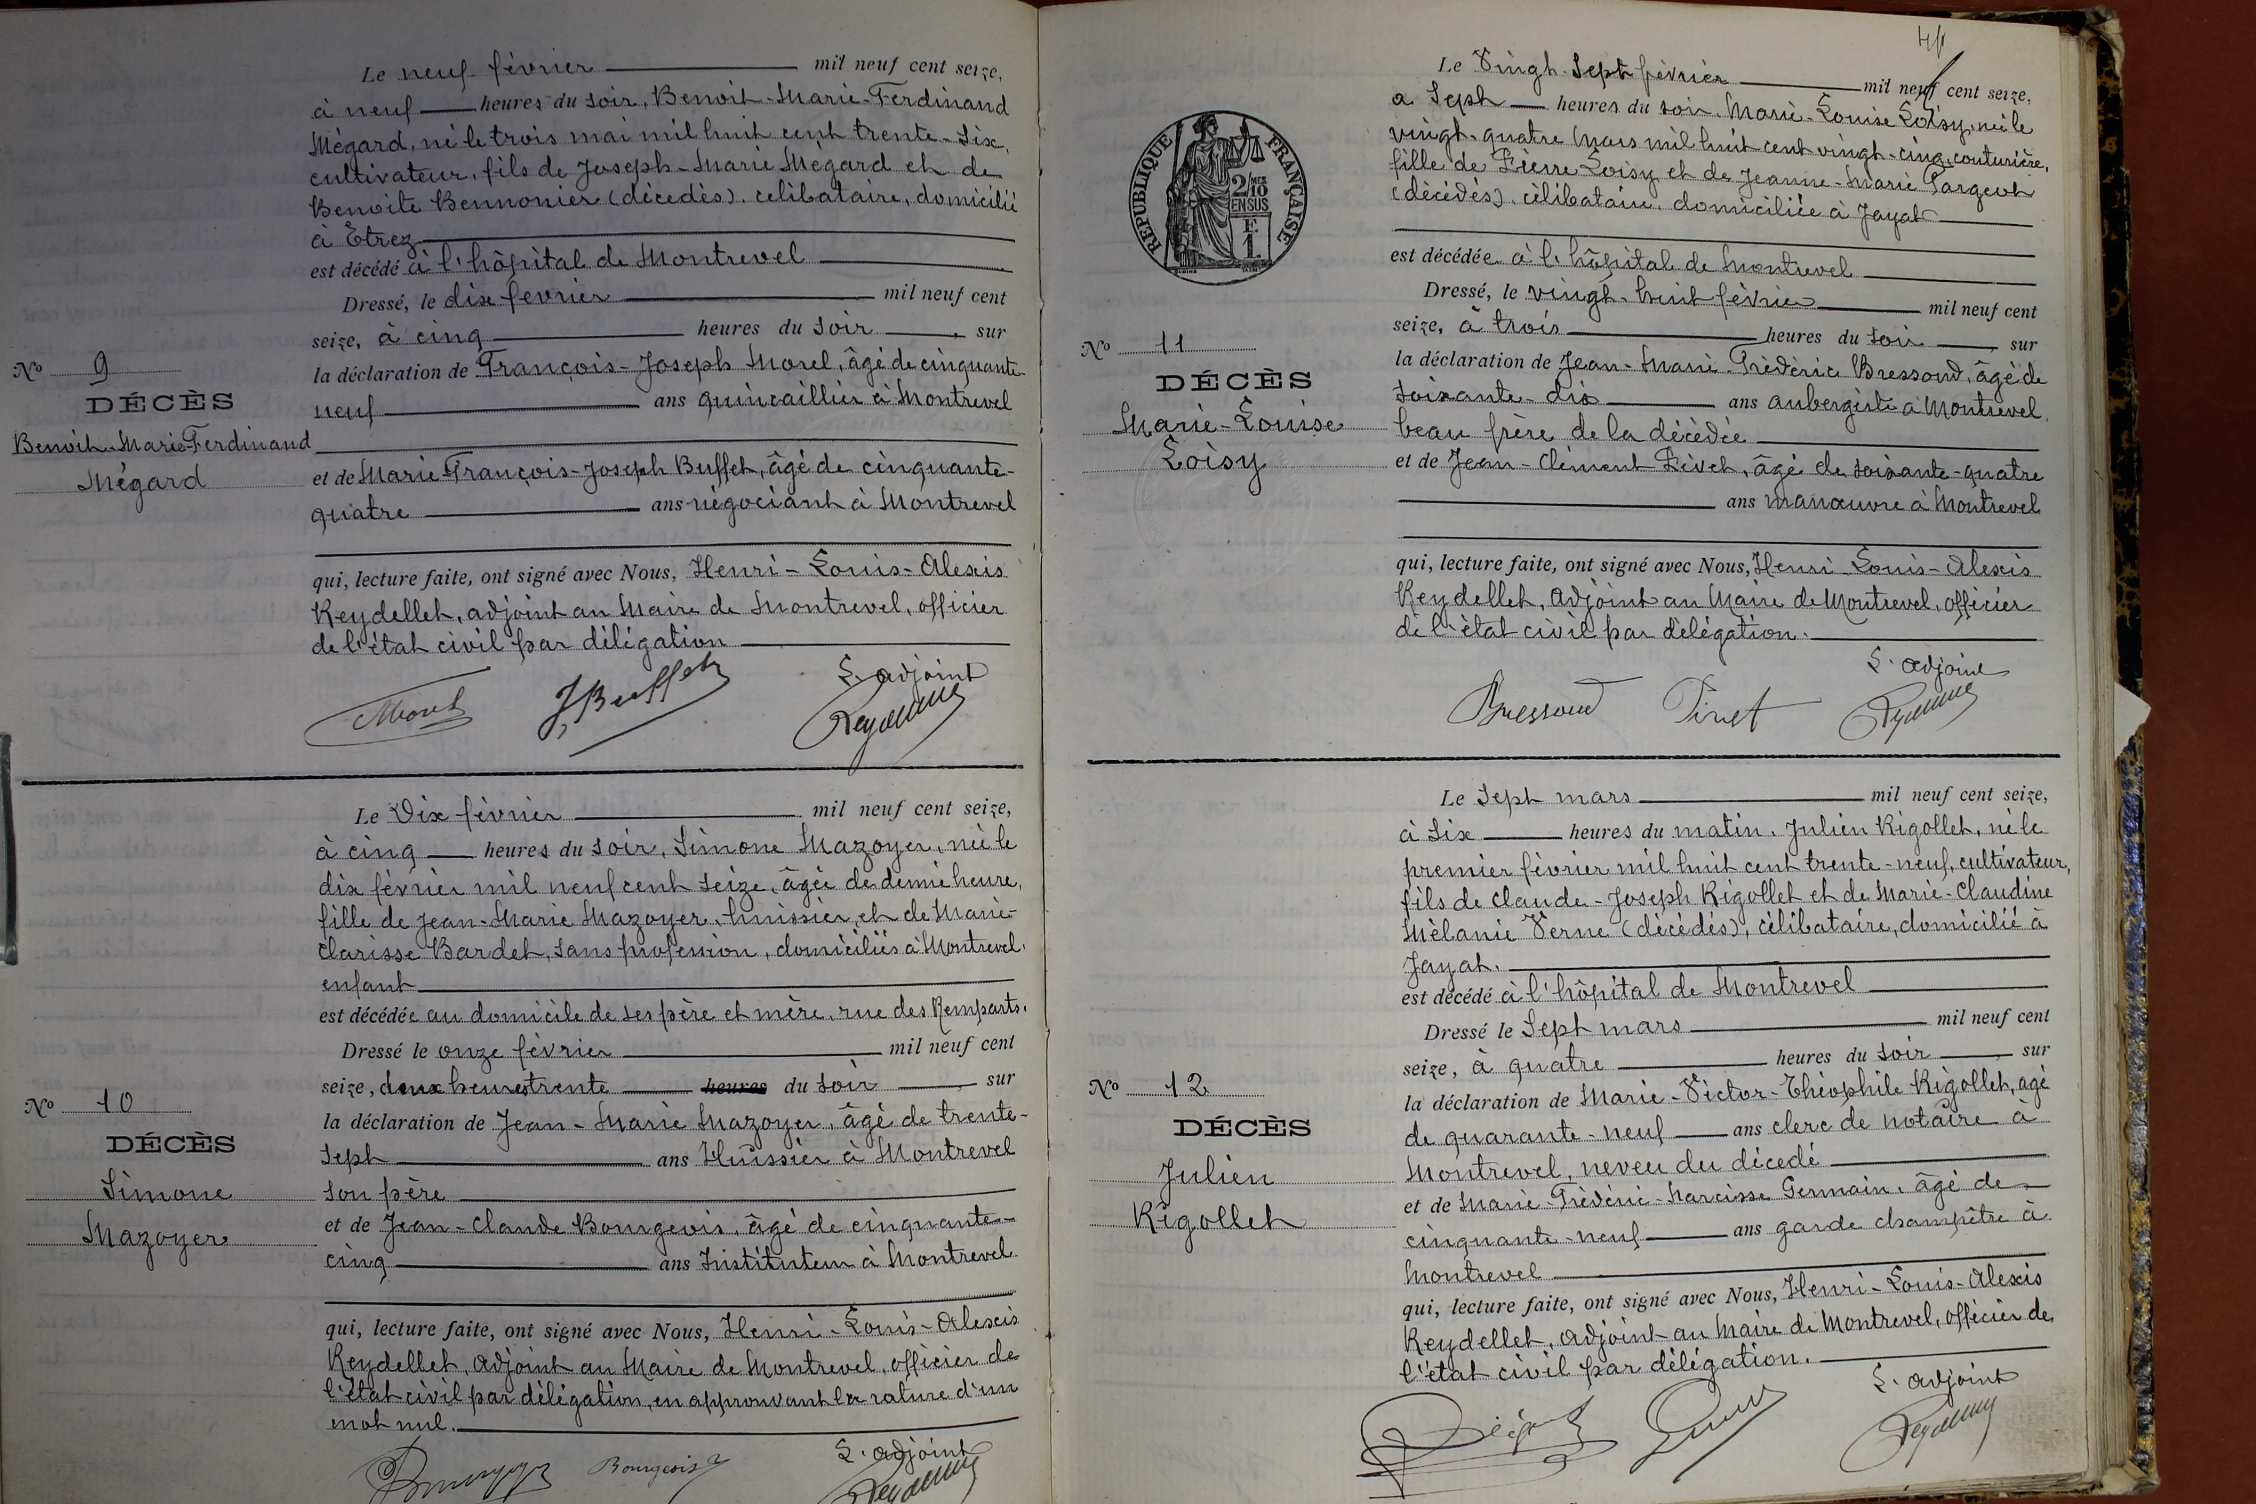 Le neuf février mil neuf cent seize,
à neuf heures du soir, Benoit-Marie-Ferdinand
Mégard, né le trois mai mil huit cent trente-six,
cultivateur, fils de Joseph-Marie Mégard et de
Benoite Bennonier (décédés), célibataire, domicilié
à Etrez
est décédé à l'hôpital de Montrevel
Dressé, le dix février mil neuf cent
seize, à cinq heures du soir, sur
la déclaration de François-Joseph Morel, âgé de cinquante-
neuf ans quincaillier à Montrevel
et de Marie-François-Joseph Buffet, âgé de cinquante-
quatre ans négociant à Montrevel
qui, lecture faite, ont signé avec Nous, Henri-Louis-Alexis
Reydellet, adjoint au Maire de Montrevel, officier
de l'état civil par délégation
L'adjoint
Morel JBuffet
No 9
DÉCÈS
Benoit-Marie-Ferdinand
Mégard
Le Dix février mil neuf cent seize,
à cinq heures du soir, Simone Mazoyer, née le
dix février mil neuf cent seize, âgée de demie heure,
fille de Jean-Marie Mazoyer, huissier, et de Marie-
Clarisse Bardet, sans profession, domiciliés à Montrevel,
enfant
est décédée au domicile de ses père et mère, rue des Remparts.
Dressé le onze février mil neuf cent
seize, deux heures trente heures du soir, sur
la déclaration de Jean-Marie Mazoyer, âgé de trente-
sept ans Huissier à Montrevel
son père
et de Jean-Claude Bourgeois, âgé de cinquante-
cinq ans Instituteur à Montrevel
qui, lecture faite, ont signé avec Nous, Henri-Louis-Alexis
Reydellet, adjoint au Maire de Montrevel, officier de
l'état civil par délégation, en approuvant la rature d'un
mot nul.
L'adjoint
Bourgeois
No 10
DÉCÈS
Simone
Mazoyer
Le Vingt-sept février mil neuf cent seize,
a sept heures du soir, Marie-Louise Loisy, née le
vingt-quatre mars mil huit cent vingt-cinq, couturière,
fille de Pierre Loisy et de Jeanne-Marie Pargeot
(décédés), célibataire, domiciliée à Jayat
est décédée à l'hôpital de Montrevel
Dressé, le vingt-huit février mil neuf cent
seize, à trois heures du soir, sur
la déclaration de Jean-Marie-Frédéric Bressoud, âgé de
soixante-dix ans aubergiste à Montrevel,
beau frère de la décédée
et de Jean-Clément Pivet, âgé de soixante-quatre
ans manœuvre à Montrevel
qui, lecture faite, ont signé avec Nous, Henri-Louis-Alexis
Reydellet, adjoint au Maire de Montrevel, officier
de l'état civil par délégation.
L'adjoint
Bressoud Pivet
RÉPUBLIQUE FRANÇAISE
2/10
EN SUS
No 11
DÉCÈS
Marie-Louise
Loisy
Le Sept mars mil neuf cent seize,
à six heures du matin, Julien Rigollet, né le
premier février mil huit cent trente-neuf, cultivateur,
fils de Claude-Joseph Rigollet et de Marie-Claudine
Mélanie Verne (décédés), célibataire, domicilié à
Jayat.
est décédé à l'hôpital de Montrevel
Dressé le Sept mars mil neuf cent
seize, à quatre heures du soir, sur
la déclaration de Marie-Victor-Théophile Rigollet, agé
de quarante-neuf ans clerc de notaire à
Montrevel, neveu du décedé
et de Marie-Frédéric-Narcisse Germain, âgé de
cinquante-neuf ans garde champêtre à
Montrevel
qui, lecture faite, ont signé avec Nous, Henri-Louis-Alexis
Reydellet, adjoint au Maire de Montrevel, officier de
l'état civil par délégation.
L'adjoint
No 12
DÉCÈS
Julien
Rigollet